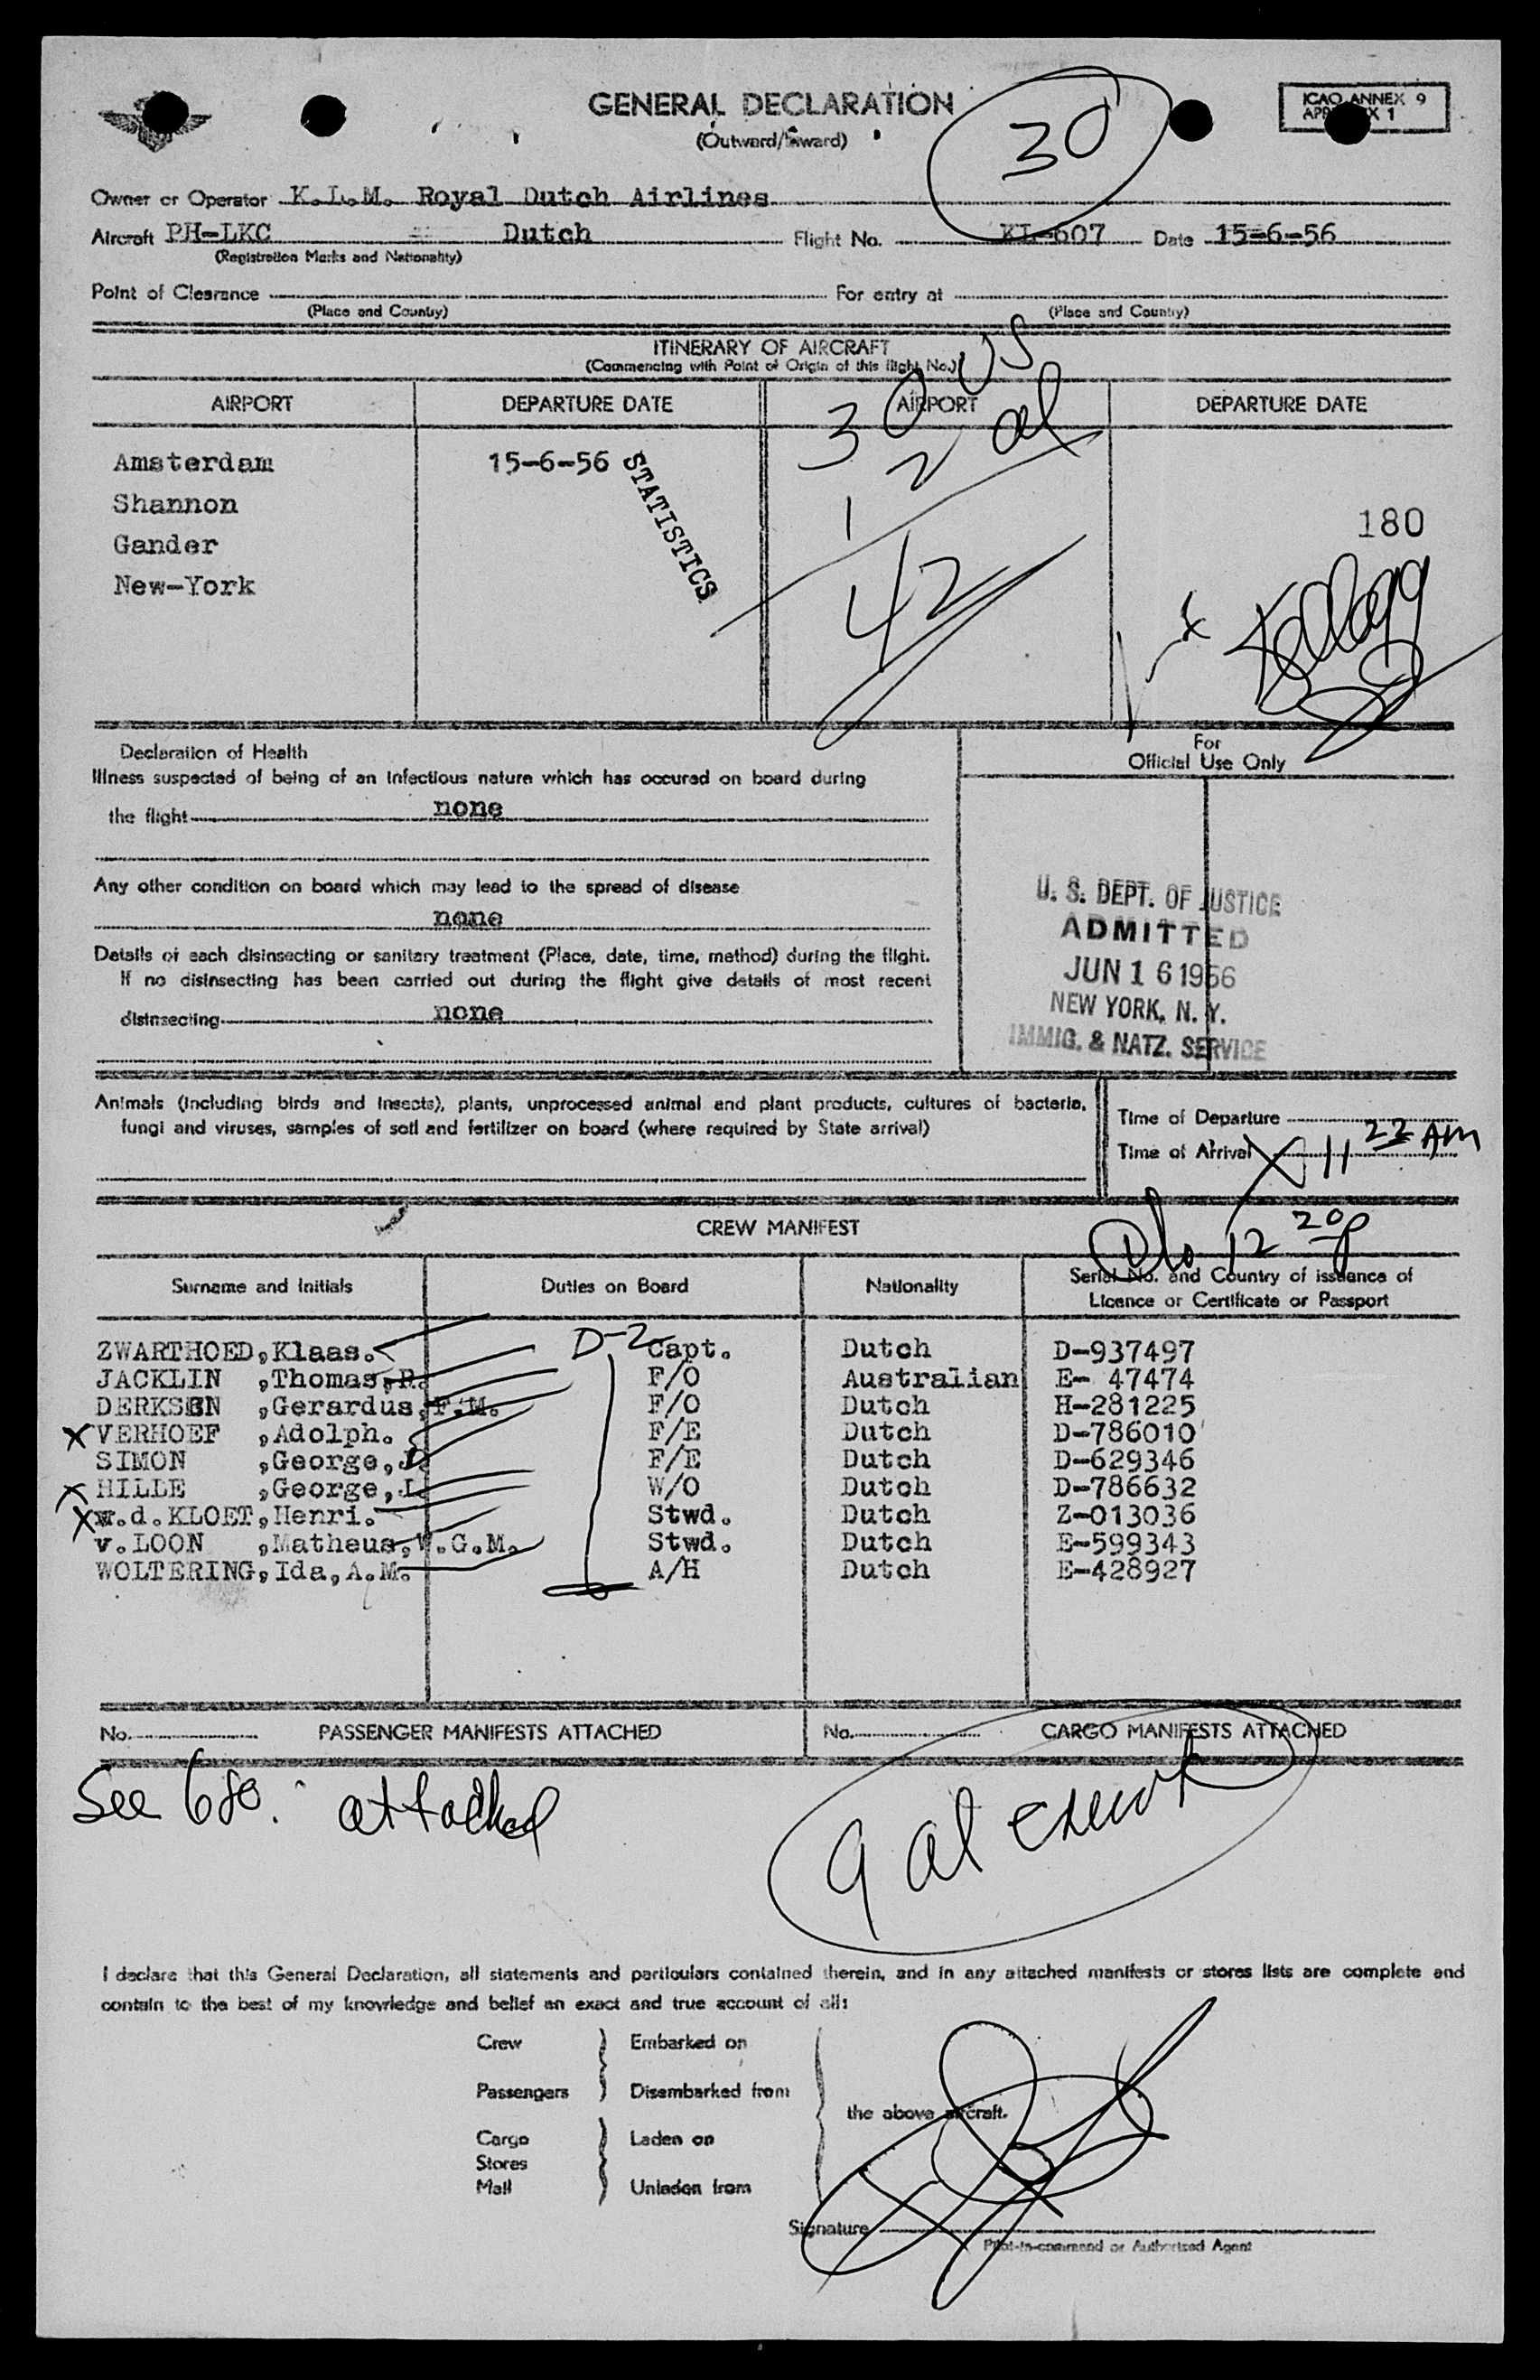 GENERAL DECLARATION
(Outward/Inward)
30
ICAO ANNEX 9
Owner or Operator K.L.M. Royal Dutch Airlines
Aircraft PH-LKC Dutch Flight No. KL-607 Date 15-6-56
(Registration Marks and Nationality)
Point of Clearance For entry at
(Place and Country) (Place and Country)
ITINERARY OF AIRCRAFT
(Commencing with Point of Origin of this flight No.)
AIRPORT DEPARTURE DATE AIRPORT DEPARTURE DATE
30 US
2 al
1
42
Amsterdam 15-6-56
Shannon
Gander
New-York
STATISTICS
180
Kellogg
Declaration of Health
Illness suspected of being of an infectious nature which has occured on board during
the flight none
Any other condition on board which may lead to the spread of disease
none
Details of each disinsecting or sanitary treatment (Place, date, time, method) during the flight.
If no disinsecting has been carried out during the flight give details of most recent
disinsecting none
For
Official Use Only
U. S. DEPT. OF JUSTICE
ADMITTED
JUN 16 1956
NEW YORK, N. Y.
IMMIG. & NATZ. SERVICE
Animals (including birds and insects), plants, unprocessed animal and plant products, cultures of bacteria,
fungi and viruses, samples of soil and fertilizer on board (where required by State arrival)
Time of Departure
Time of Arrival 11 22 AM
12 20p
CREW MANIFEST
Surname and Initials Duties on Board Nationality Serial No. and Country of issuance of
Licence or Certificate or Passport
D-2
ZWARTHOED,Klaas. Capt. Dutch D-937497
JACKLIN ,Thomas,R. F/O Australian E- 47474
DERKSEN ,Gerardus,F.M. F/O Dutch H-281225
X VERHOEF ,Adolph. F/E Dutch D-786010
SIMON ,George,J. F/E Dutch D-629346
X HILLE ,George,J. W/O Dutch D-786632
X w.d.KLOET,Henri. Stwd. Dutch Z-013036
v.LOON ,Matheus,W.G.M. Stwd. Dutch E-599343
WOLTERING,Ida,A.M. A/H Dutch E-428927
No. PASSENGER MANIFESTS ATTACHED No. CARGO MANIFESTS ATTACHED
See 680. attached
9 al crew
I declare that this General Declaration, all statements and particulars contained therein, and in any attached manifests or stores lists are complete and
contain to the best of my knowledge and belief an exact and true account of all:
Crew Embarked on
Passengers Disembarked from
the above aircraft.
Cargo Laden on
Stores
Mail Unladen from
Signature
Pilot-in-command or Authorized Agent